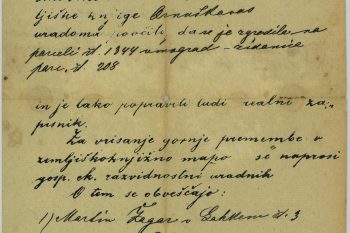 ljiške knjige Ornuškavas
uradoma poročiti, da se je zgradila na
parceli št. 1344 vinograd - zidanica
parc. št. 208
in je tako popraviti tudi realni za-
pisnik.
Za vrisanje gornje premembe v
zemljiškoknjižno mapo se naprosi
gosp. ck. razvidnostni uradnik
O tem se obveščajo:
1) Martin Žagar v št. 3